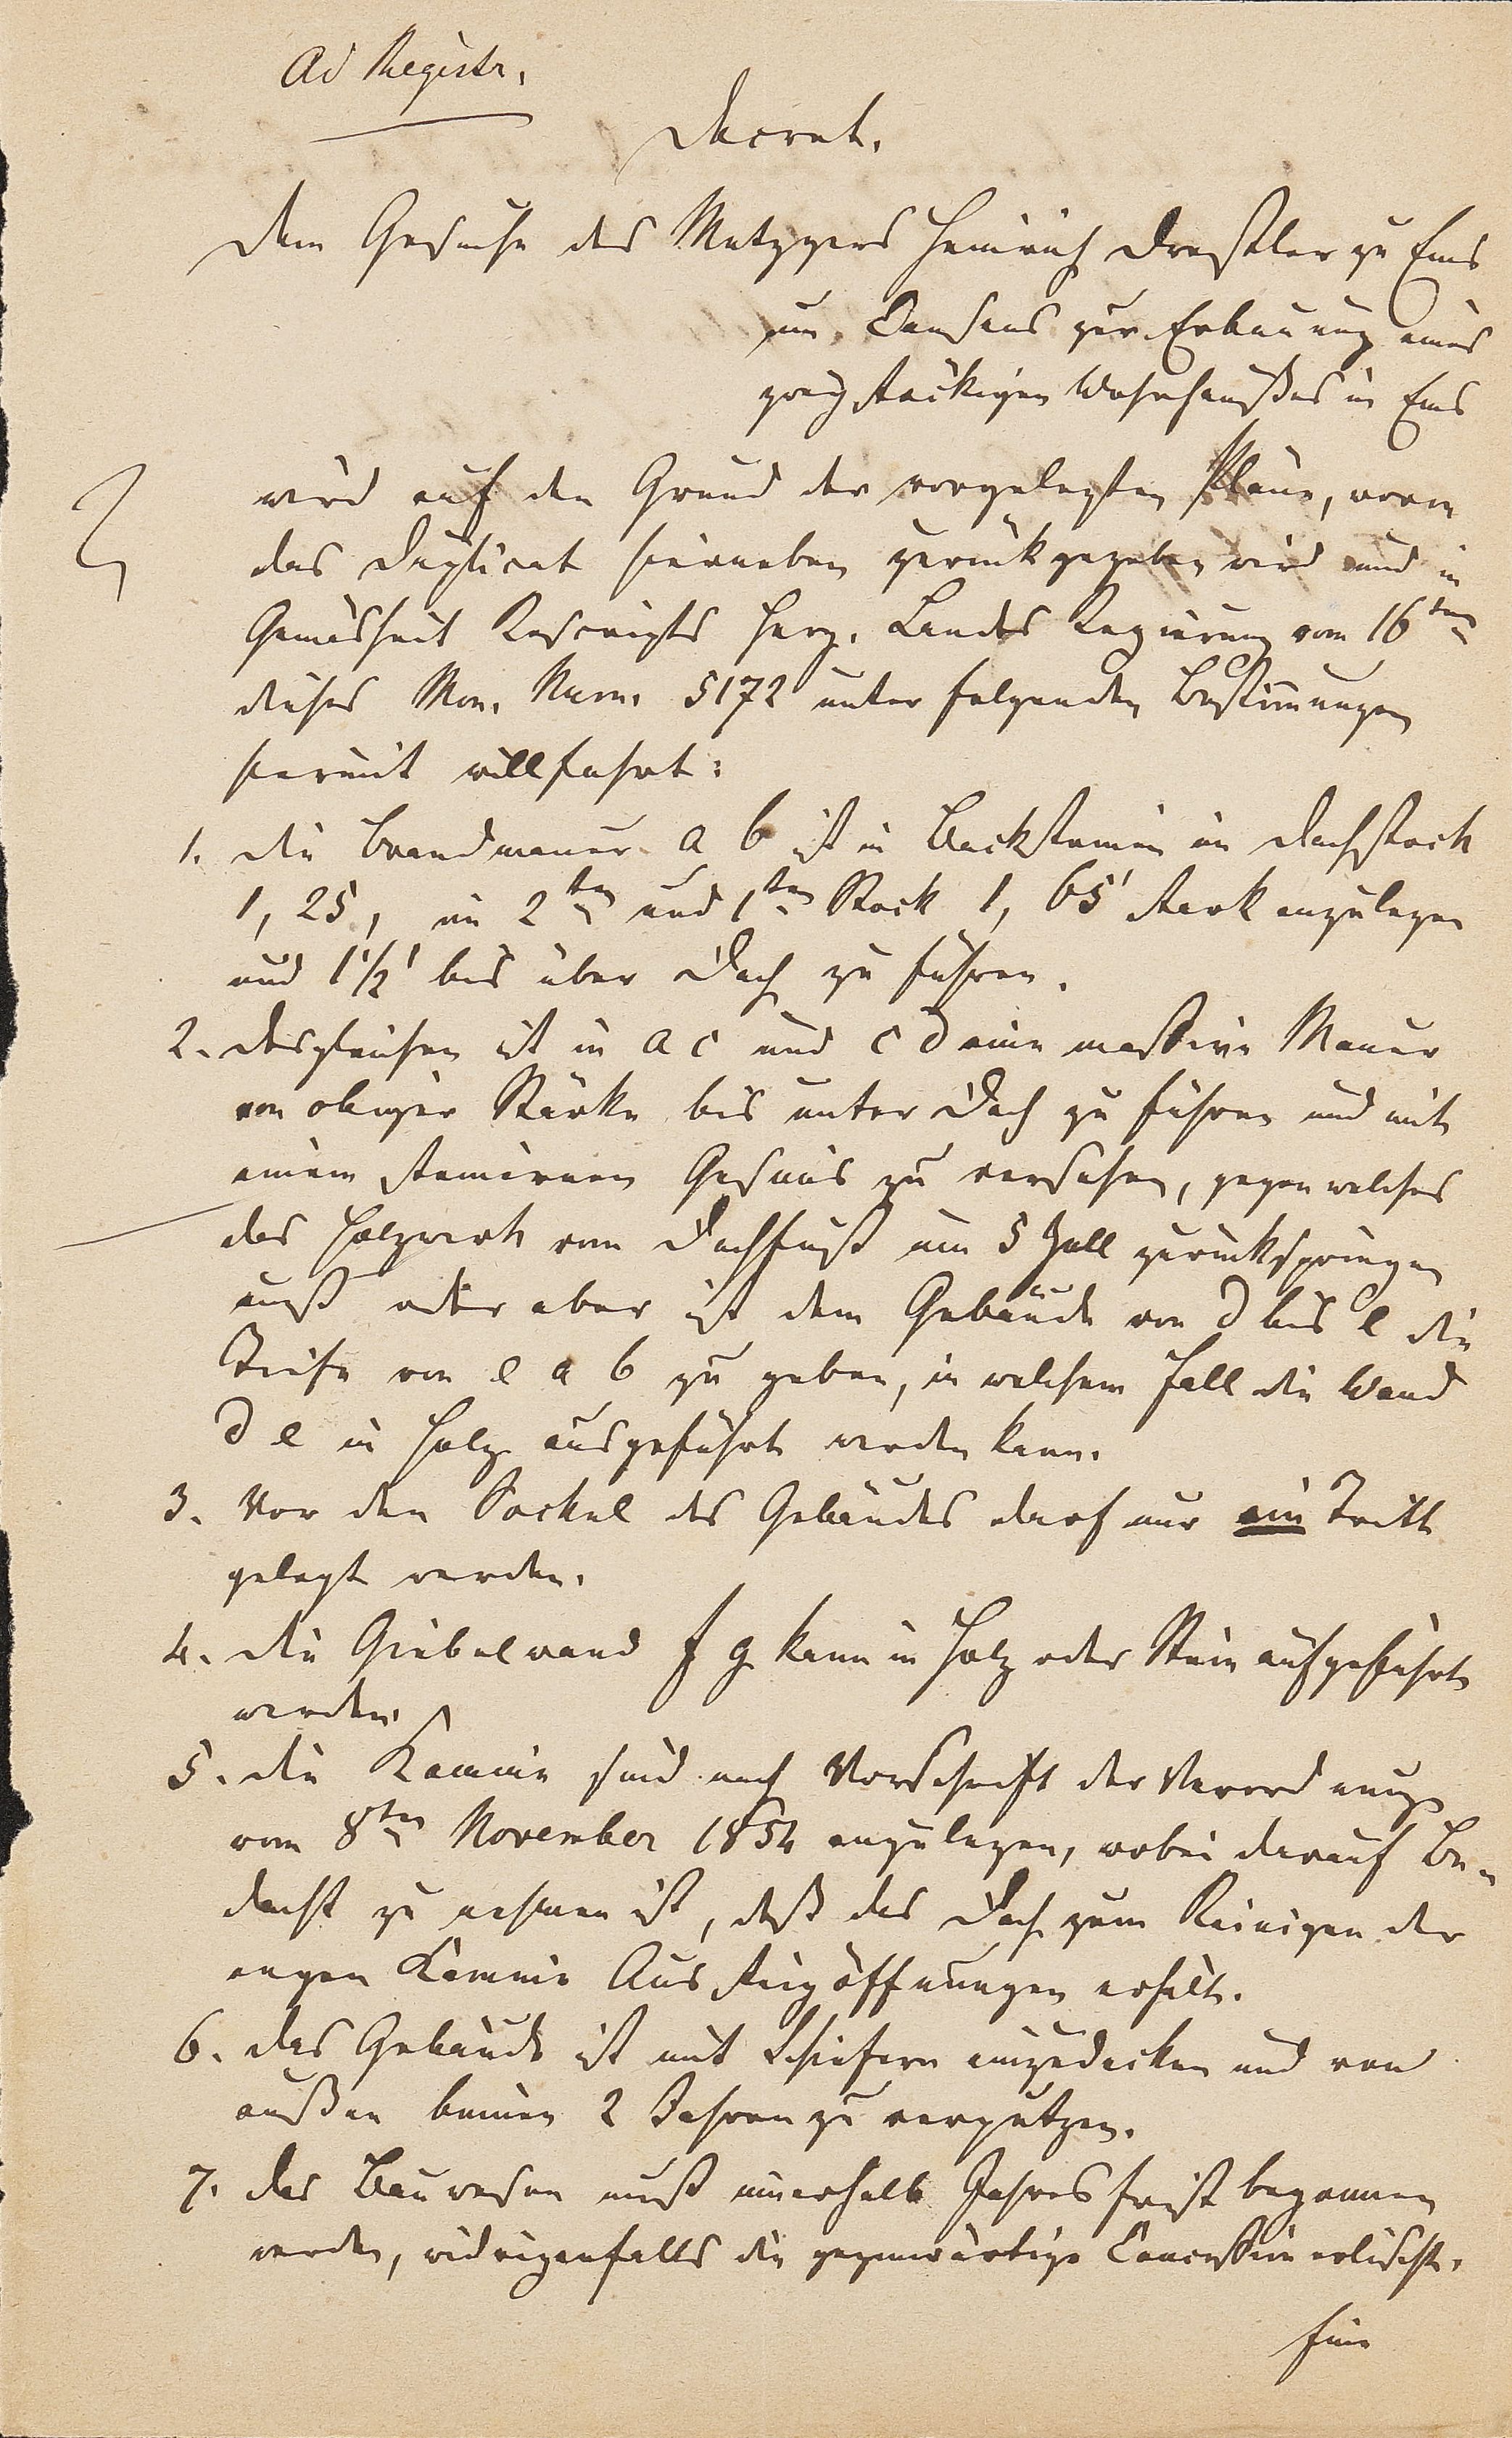 Ad Registr.
Decret.
Dem Gesuche des Metzgers Heinrich Dreßler zu Ems
um Consens zur Erbauung eines
zweistöckigen Wohnhaußes in Ems
wird auf den Grund der vorgelegten Pläne, wovon
das Duplicat hierneben zurückgegeben wird und in
Gemäsheit Rescripts Herz. Landes Regierung vom 16ten
dieses Mon. Num. 5172 unter folgenden Bestimungen
hiermit willfahrt:
1. Die Brandmauer a b ist in Backsteinen im Dachstock
1,25, im 2ten und 1ten Stock 1,65' stark anzulegen
und 1 1/2' bis über Dach zu führen.
2. Desgleichen ist in a c und c d eine massive Mauer
von obiger Stärke bis unter Dach zu führen und mit
einem steinernen Gesims zu versehen, gegen welches
das Holzwerk vom Dachfuß um 5 Zoll zurückspringen
muß oder aber ist dem Gebäude von d bis e die
Tiefe von e a b zu geben, in welchem Fall die Wand
d e in Holz ausgeführt werden kann.
3. Vor den Sockel des Gebäudes darf nur ein Tritt
gelegt werden.
4. Die Giebelwand f g kann in Holz oder Stein aufgeführt
werden.
5. Die Kamine sind nach Vorschrift der Verordnung
vom 8ten November 1854 anzulegen, wobei darauf Be-
dacht zu nehmen ist, daß das Dach zum Reinigen der
engen Kamine Aussteigöffnungen erhält.
6. Das Gebäude ist mit Schiefern einzudecken und von
außen binnen 2 Jahren zu verputzen.
7. Das Bauwesen muß innerhalb Jahresfrist begonnen
werden, widrigenfalls die gegenwärtige Concession erlischt.